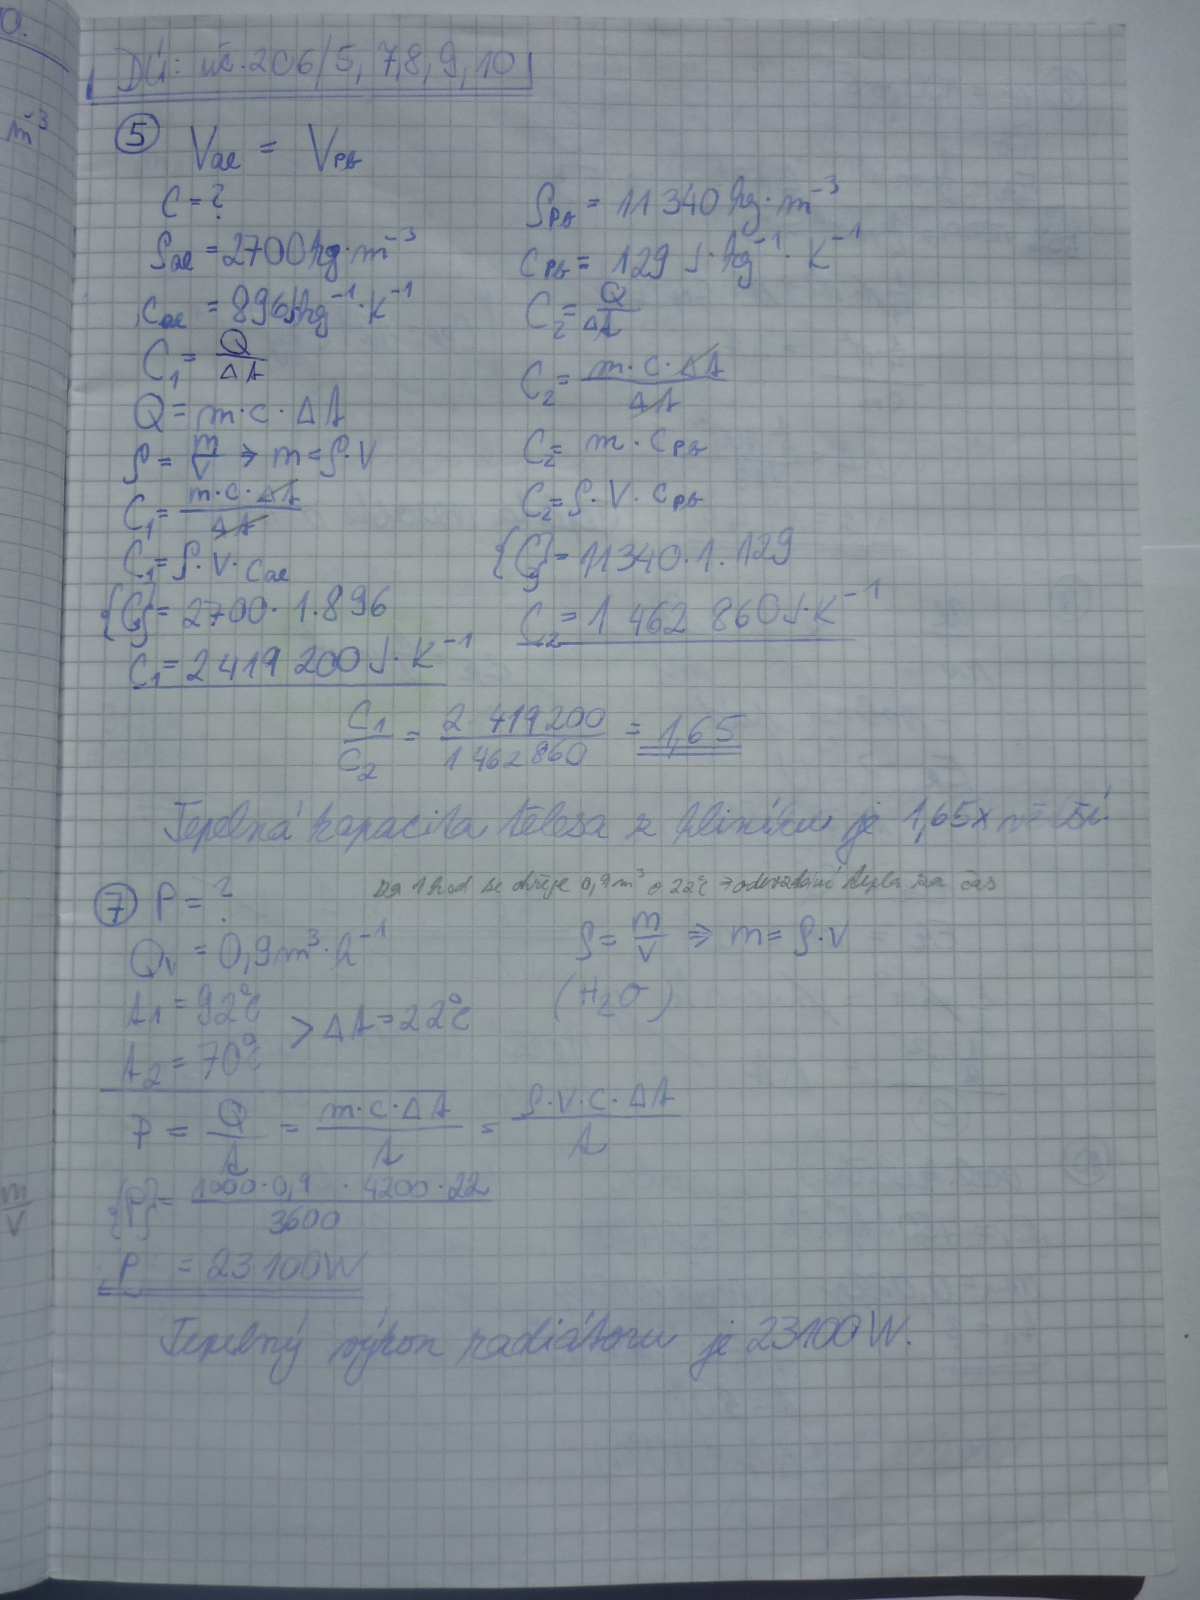 0.
m⁻³
DÚ: uč. 206/5, 7,8, 9, 10
5 V_Al = V_Pb
C = ?
ρ_Al = 2700 kg·m⁻³
c_Al = 896 J·kg⁻¹·K⁻¹
C₁ = Q/Δt
Q = m·c·Δt
ρ = m/V ⇒ m = ρ·V
C₁ = m·c·Δt/Δt
C₁ = ρ·V·c_Al
{C₁} = 2700·1·896
C₁ = 2 419 200 J·K⁻¹
ρ_Pb = 11 340 kg·m⁻³
c_Pb = 129 J·kg⁻¹·K⁻¹
C₂ = Q/Δt
C₂ = m·c·Δt/Δt
C₂ = m·c_Pb
C₂ = ρ·V·c_Pb
{C₂} = 11340·1·129
C₂ = 1 462 860 J·K⁻¹
C₁/C₂ = 2 419200/1 462 860 = 1,65
Tepelná kapacita tělesa z hliníku je 1,65x větší.
7 P = ?
za 1 hod se ohřeje 0,9 m³ o 22°C → odevzdání tepla za čas
Q_V = 0,9 m³·h⁻¹
t₁ = 92°C
t₂ = 70°C
> Δt = 22°C
ρ = m/V ⇒ m = ρ·V
(H₂O)
P = Q/t = m·c·Δt/t = ρ·V·c·Δt/t
{P} = 1000·0,9 ·4200·22/3600
P = 23 100 W
Tepelný výkon radiátoru je 23100 W.
m/V